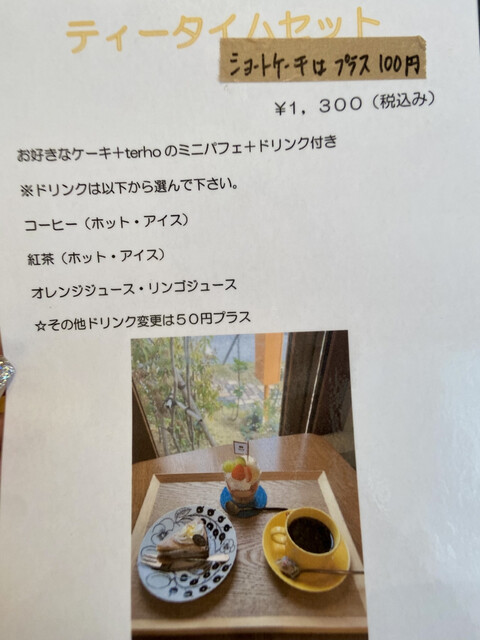 ティータイムセット
ショートケーキは プラス 100円
¥1,300（税込み）
お好きなケーキ＋terhoのミニパフェ＋ドリンク付き
※ドリンクは以下から選んで下さい。
コーヒー（ホット・アイス）
紅茶（ホット・アイス）
オレンジジュース・リンゴジュース
☆その他ドリンク変更は５０円プラス